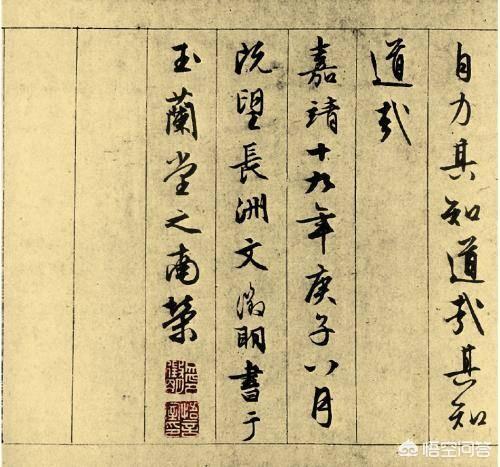 自力其知道哉其知
道哉
嘉靖十九年庚子八月
既望長洲文徵明書于
玉蘭堂之南榮
悟空问答